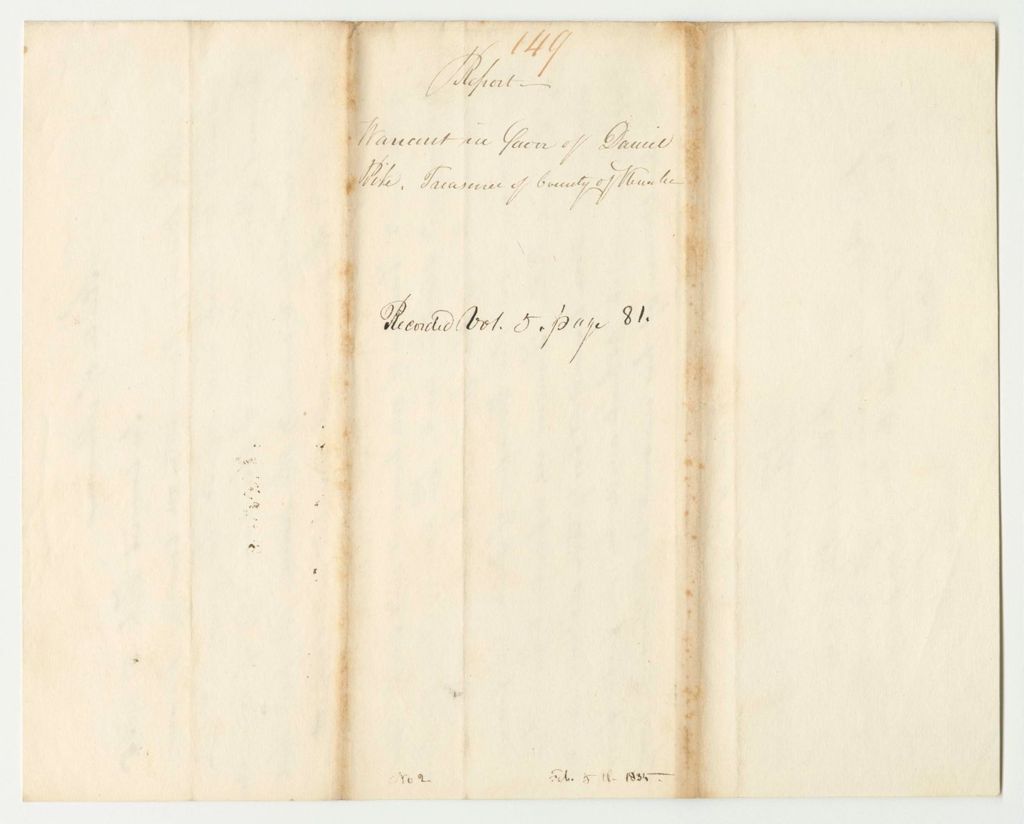 149
Report
Warrant in favor of Daniel
Pike, Treasurer of County of Kennebec
Recorded Vol. 5. page 81.
No 2
Feb. 5th 1835